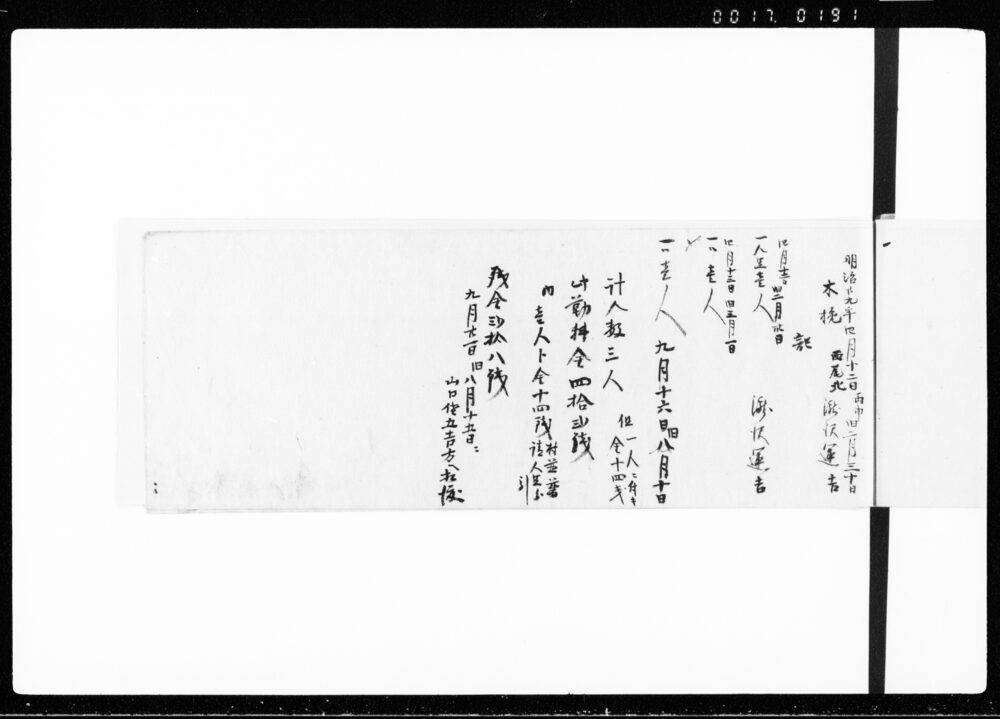 0017. 0191
明治廿九年四月十二日 丙申 旧二月三十日
木挽 西尾北 瀧沢運吉
記
四月 日 旧 二月 日
一人足壱人 瀧沢運吉
四月十三日 旧三月一日
一〃壱人
一〃壱人 九月十六日 旧八月十日
計人数三人 但一人ニ付キ 金十四銭
此勤料金四拾弐銭
内 壱人ト金十四銭 村並 請人足分 引
残金弐拾八銭
九月廿一日 旧八月十五日ニ
山口 五吉方へ相渡